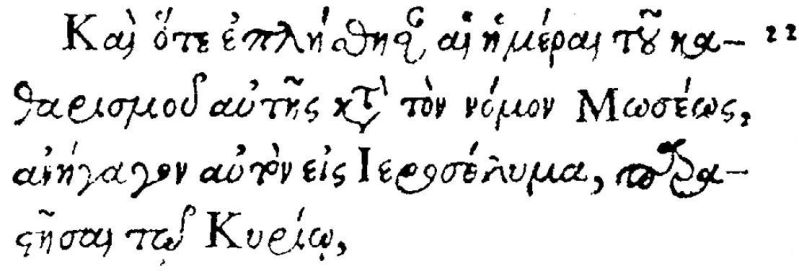 Καὶ ὅτε ἐπλήσθησαν αἱ ἡμέραι τοῦ κα- 22
θαρισμοῦ αὐτῆς κατὰ τὸν νόμον Μωσέως,
ἀνήγαγον αὐτὸν εἰς Ιεροσόλυμα, παρα-
στῆσαι τῷ Κυρίῳ,